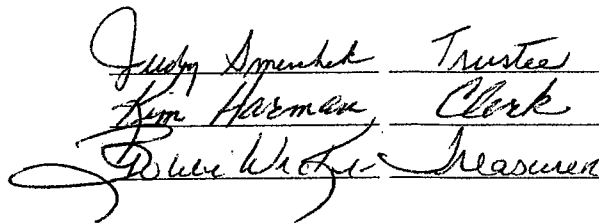 Judy Smenhek Trustee
Kim Harman Clerk
Treasurer